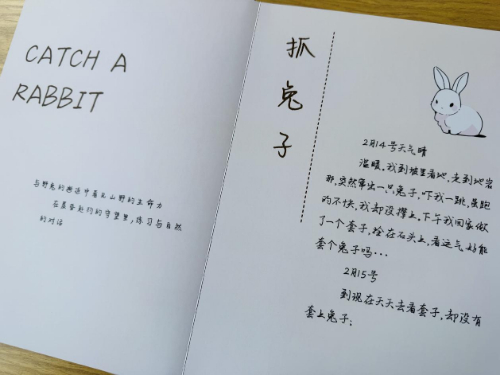 CATCH A
RABBIT
与野兔的邂逅中看见山野的生命力
在暮春赴约的守望里,练习与自然
的对话
抓兔子
2月14号天气晴
温暖,我到坡里看地,走到地当
那,突然窜出一只兔子,吓我一跳,虽跑
的不快,我却没撵上,下午我回家做
了一个套子,拴在石头上,看运气好能
套个兔子吗...
2月15号
到现在天天去看套子,却没有
套上兔子;